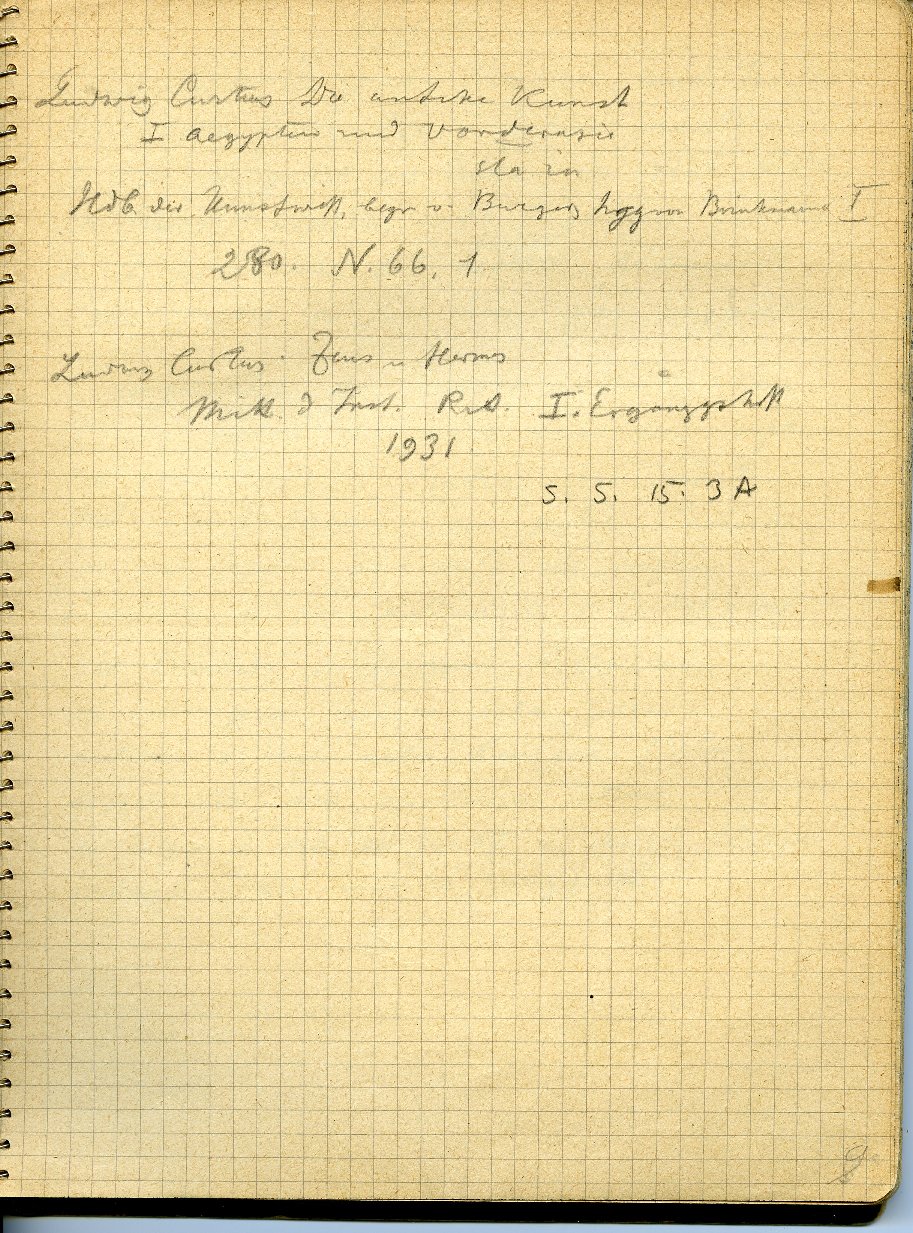 Ludwig Curtius Die antike Kunst
I Aegypten und Vorderasien
Hdb. der Kunstwiss. begr. v. Burger hgg von Brinkmann I
280. N. 66, 1
Ludwig Curtius. Zeus u Hermes
Mitt. d Inst. Röm. I. Ergänzgsheft
1931
S. S. 15. 3 A